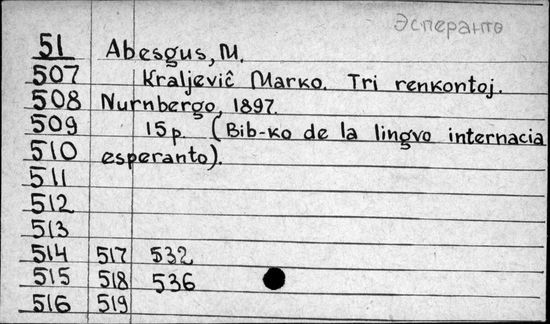 Эсперанто
51 Abesgus, M.
507 Kraljeviĉ Marko. Tri renkontoj.
508 Nurnbergo, 1897.
509 15 p. (Bib-ko de la lingvo internacia
510 esperanto).
511
512
513
514 517 532
515 518 536
516 519